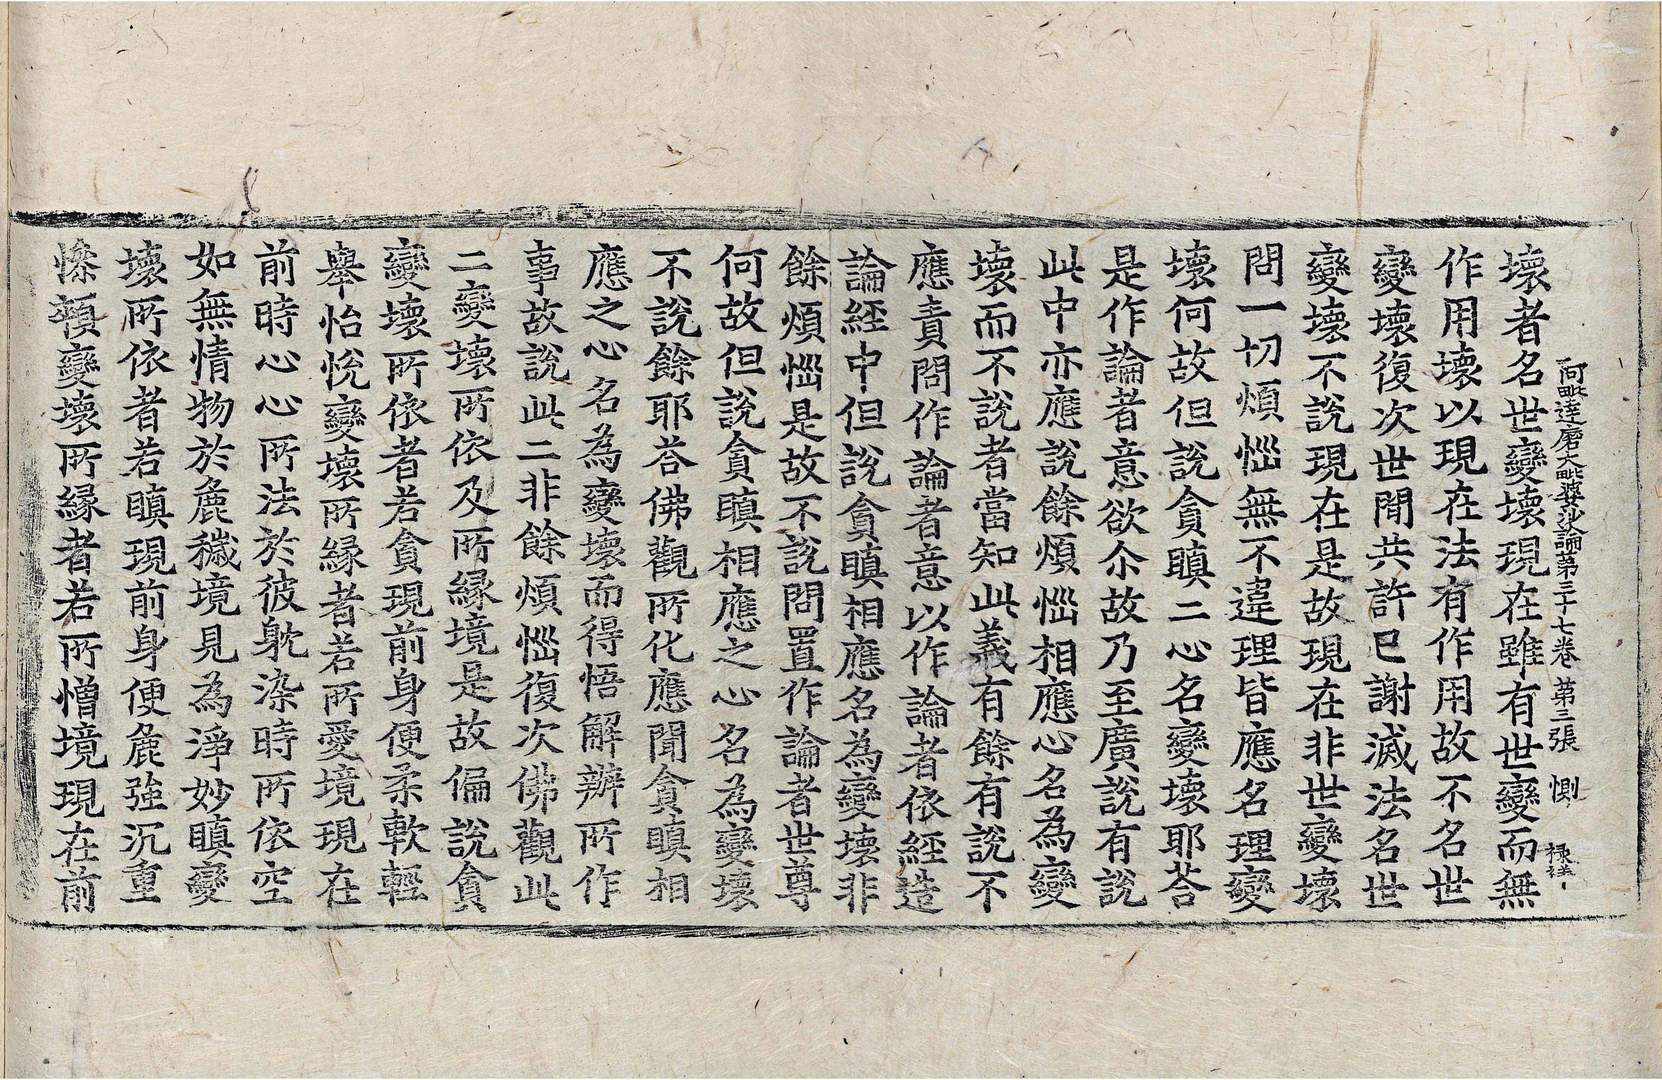 阿毗達磨大毗婆沙論第三十七卷 第三張 惻 祿祥
壞者名世變壞現在雖有世變而無
作用壞以現在法有作用故不名世
變壞復次世間共許已謝滅法名世
變壞不說現在是故現在非世變壞
問一切煩惱無不違理皆應名理變
壞何故但說貪瞋二心名變壞耶荅
是作論者意欲尒故乃至廣說有說
此中亦應說餘煩惱相應心名為變
壞而不說者當知此義有餘有說不
應責問作論者意以作論者依經造
論經中但說貪瞋相應名為變壞非
餘煩惱是故不說問置作論者世尊
何故但說貪瞋相應之心名為變壞
不說餘耶荅佛觀所化應聞貪瞋相
應之心名為變壞而得悟解辦所作
事故說此二非餘煩惱復次佛觀此
二變壞所依及所緣境是故偏說貪
變壞所依者若貪現前身便柔軟輕
舉怡悅變壞所緣者若所愛境現在
前時心心所法於彼躭染時所依空
如無情物於麁穢境見為淨妙瞋變
壞所依者若瞋現前身便麁強沉重
憏顇變壞所緣者若所憎境現在前